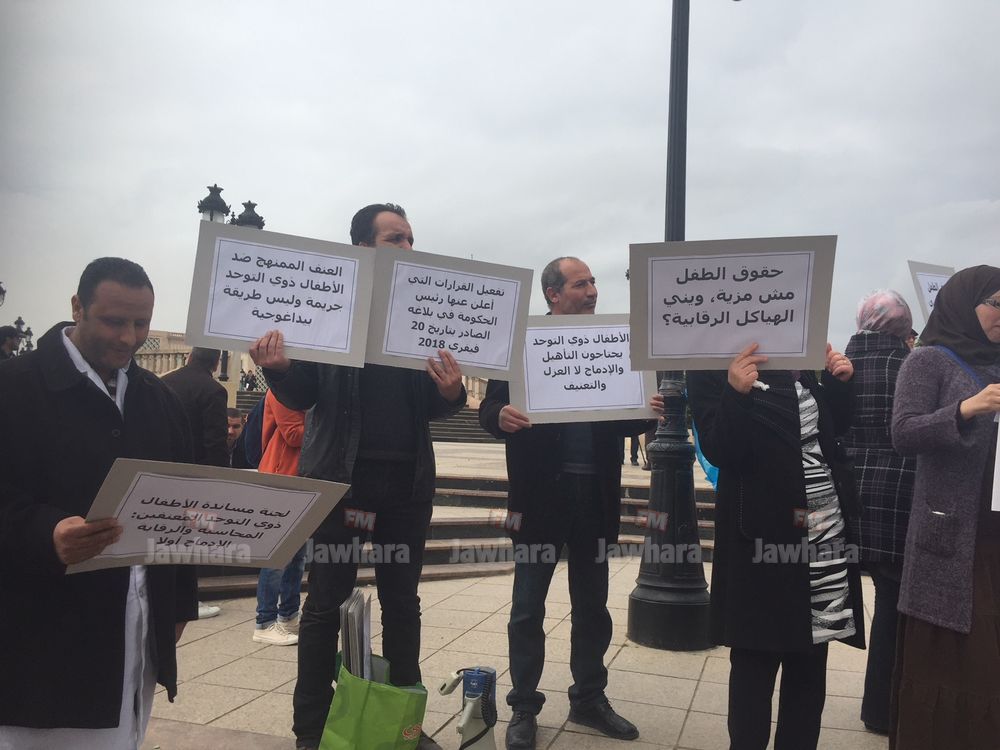 العنف الممنهج ضد
الأطفال ذوي التوحد
جريمة وليس طريقة
بيداغوجية
تفعيل القرارات التي
أعلن عنها رئيس
الحكومة في بلاغه
الصادر بتاريخ 20
فيفري 2018
الأطفال ذوي التوحد
يحتاجون التأهيل
والإدماج لا العزل
والتعنيف
حقوق الطفل
مش مزية، ويني
الهياكل الرقابية؟
لجنة مساندة الأطفال
ذوي التوحد المعنفين:
المحاسبة والرقابة
الإدماج أولا
FM
Jawhara
FM
Jawhara
FM
Jawhara
FM
Jawhara
FM
Jawhara